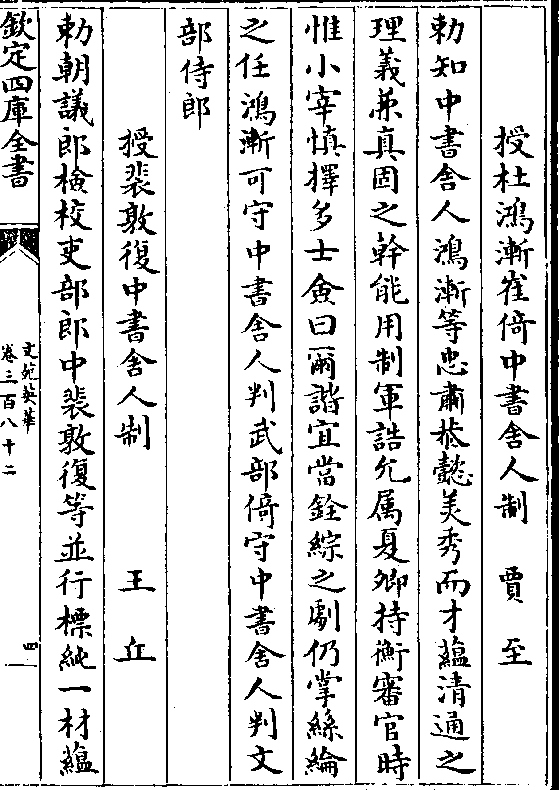 授杜鴻漸崔倚中書舍人制 賈至
勅知中書舍人鴻漸等忠肅恭懿美秀而才蘊清通之
理義兼真固之幹能用制軍誥允属夏卿持衡審官時
惟小宰慎擇多士僉曰爾諧宜當銓綜之劇仍掌絲綸
之任鴻漸可守中書舍人判武部倚守中書舍人判文
部侍郎
授裴敦復中書舍人制 王丘
勅朝議郎檢校吏部郎中裴敦復等並行標純一材蘊
欽定四庫全書
文苑英華
卷三百八十二
四